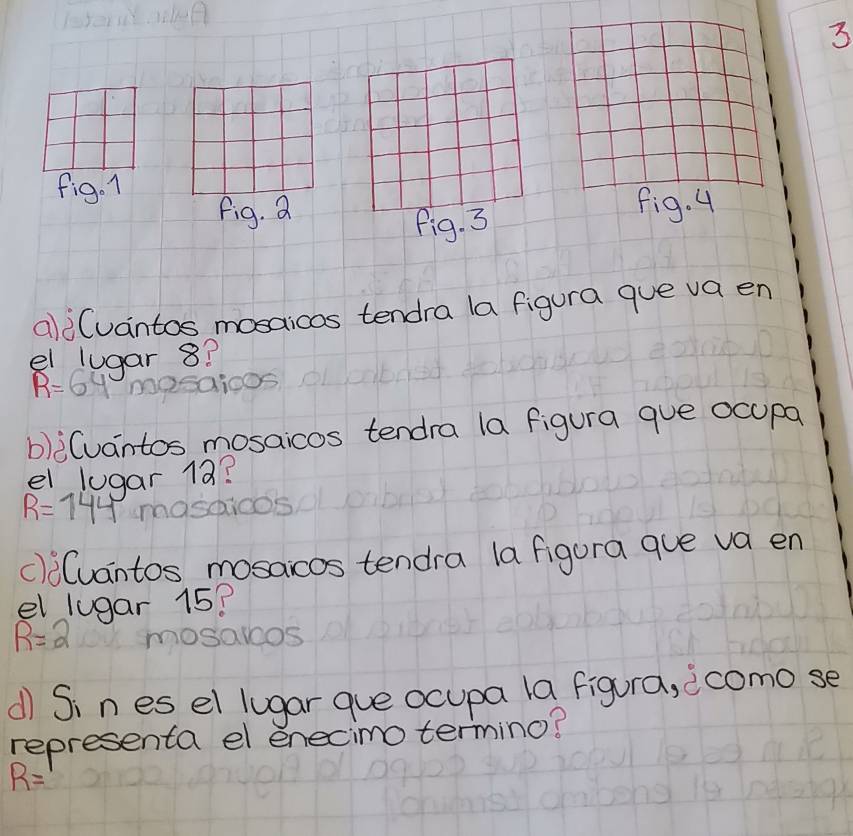 3
fig.1
fig. 2
fig. 3
fig. 4
a) ¿Cuántos mosaicos tendra la figura que va en
el lugar 8?
R= 64 mosaicos
b) ¿Cuántos mosaicos tendra la figura que ocupa
el lugar 12?
R= 144 mosaicos
c) ¿Cuántos mosaicos tendra la figura que va en
el lugar 15?
R= 2 mosaicos
d) Si n es el lugar que ocupa la figura, ¿como se
representa el enecimo termino?
R=